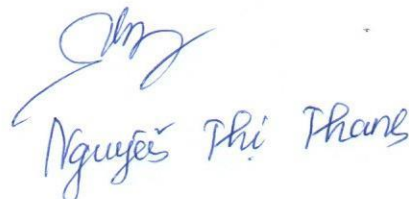 Nguyễn Thị Thang